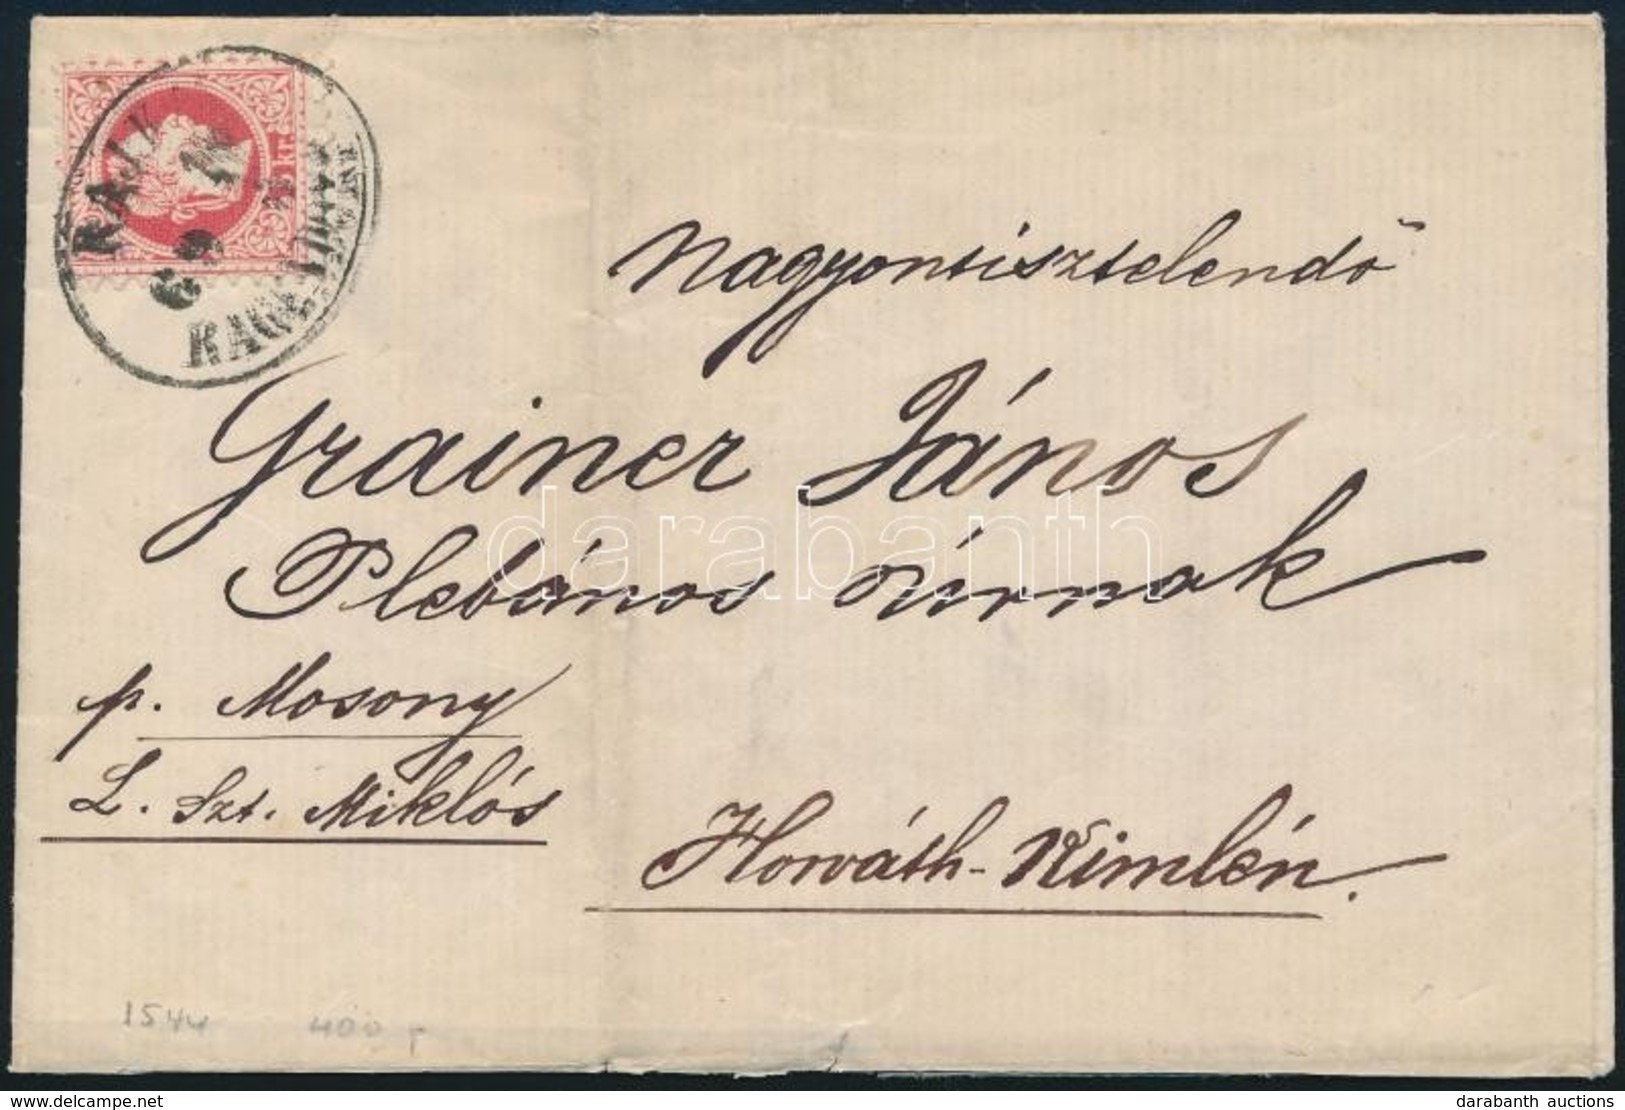 RAJK
69
KAGENDORF
5 kr.
Nagyontisztelendő
Grainer János
Plebános úrnak
p. Mosony
L. Szt. Miklós
Horváth-Kimlén.
1544 400
darabanth
delcampe.net
darabanth auctions